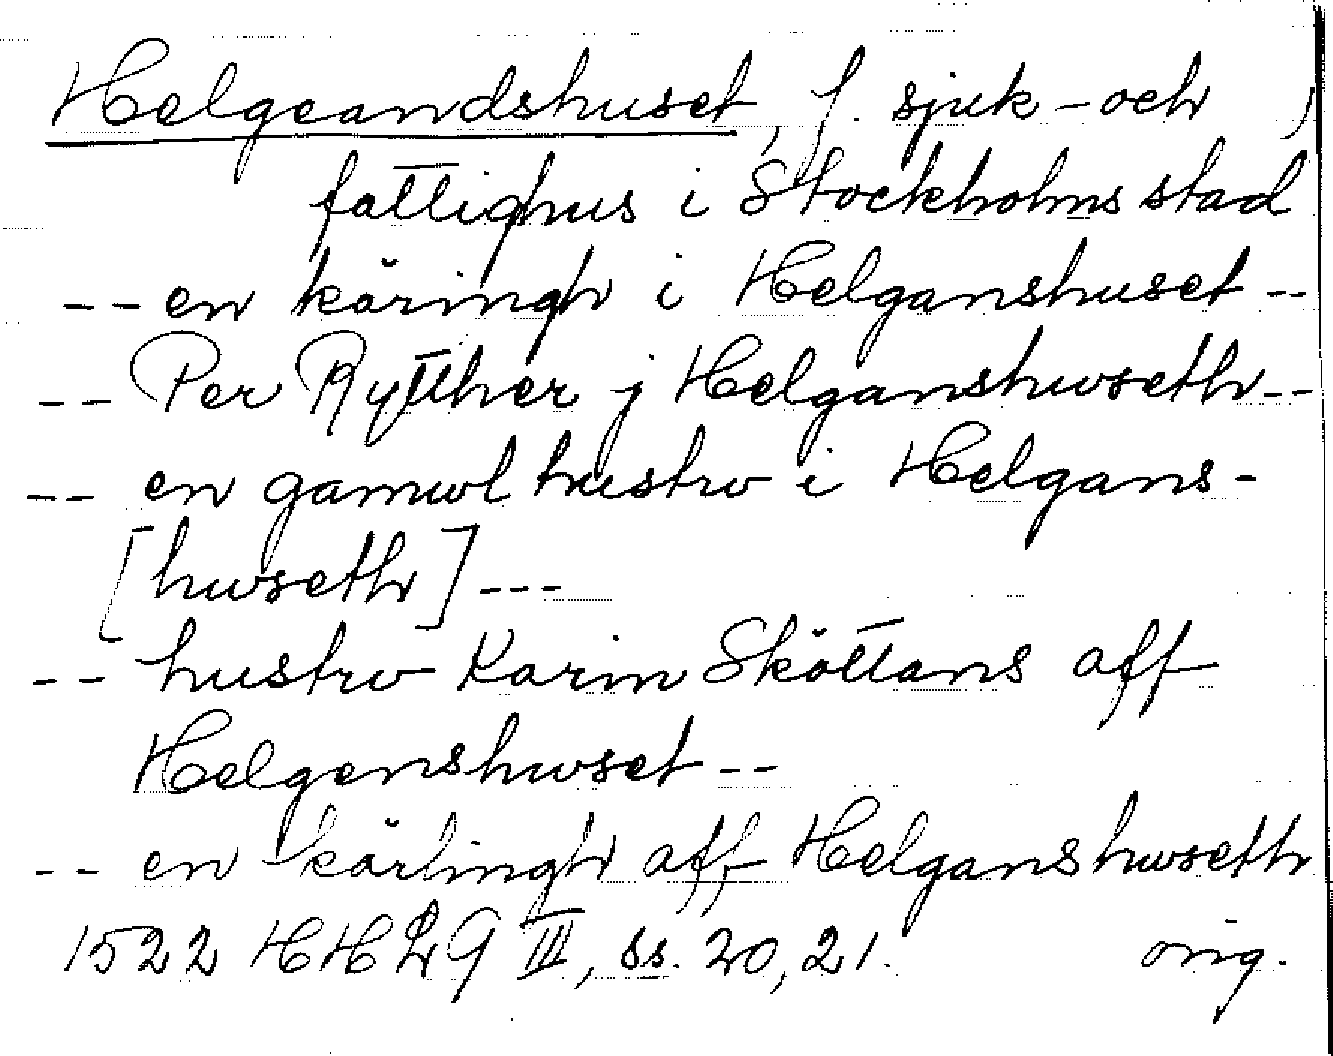 Helgeandshuset, f. sjuk- och
fattighus i Stockholms stad
-- en käringh i Helganshuset --
-- Per Rytther j Helganshwseth --
-- en gamwl hustrv i Helgans-
[hwseth] ---
-- hustrv Karin Sköttans aff
Helgenshwset --
-- en kärlingh aff Helganshwseth
1522 HH III, ss. 20, 21. orig.